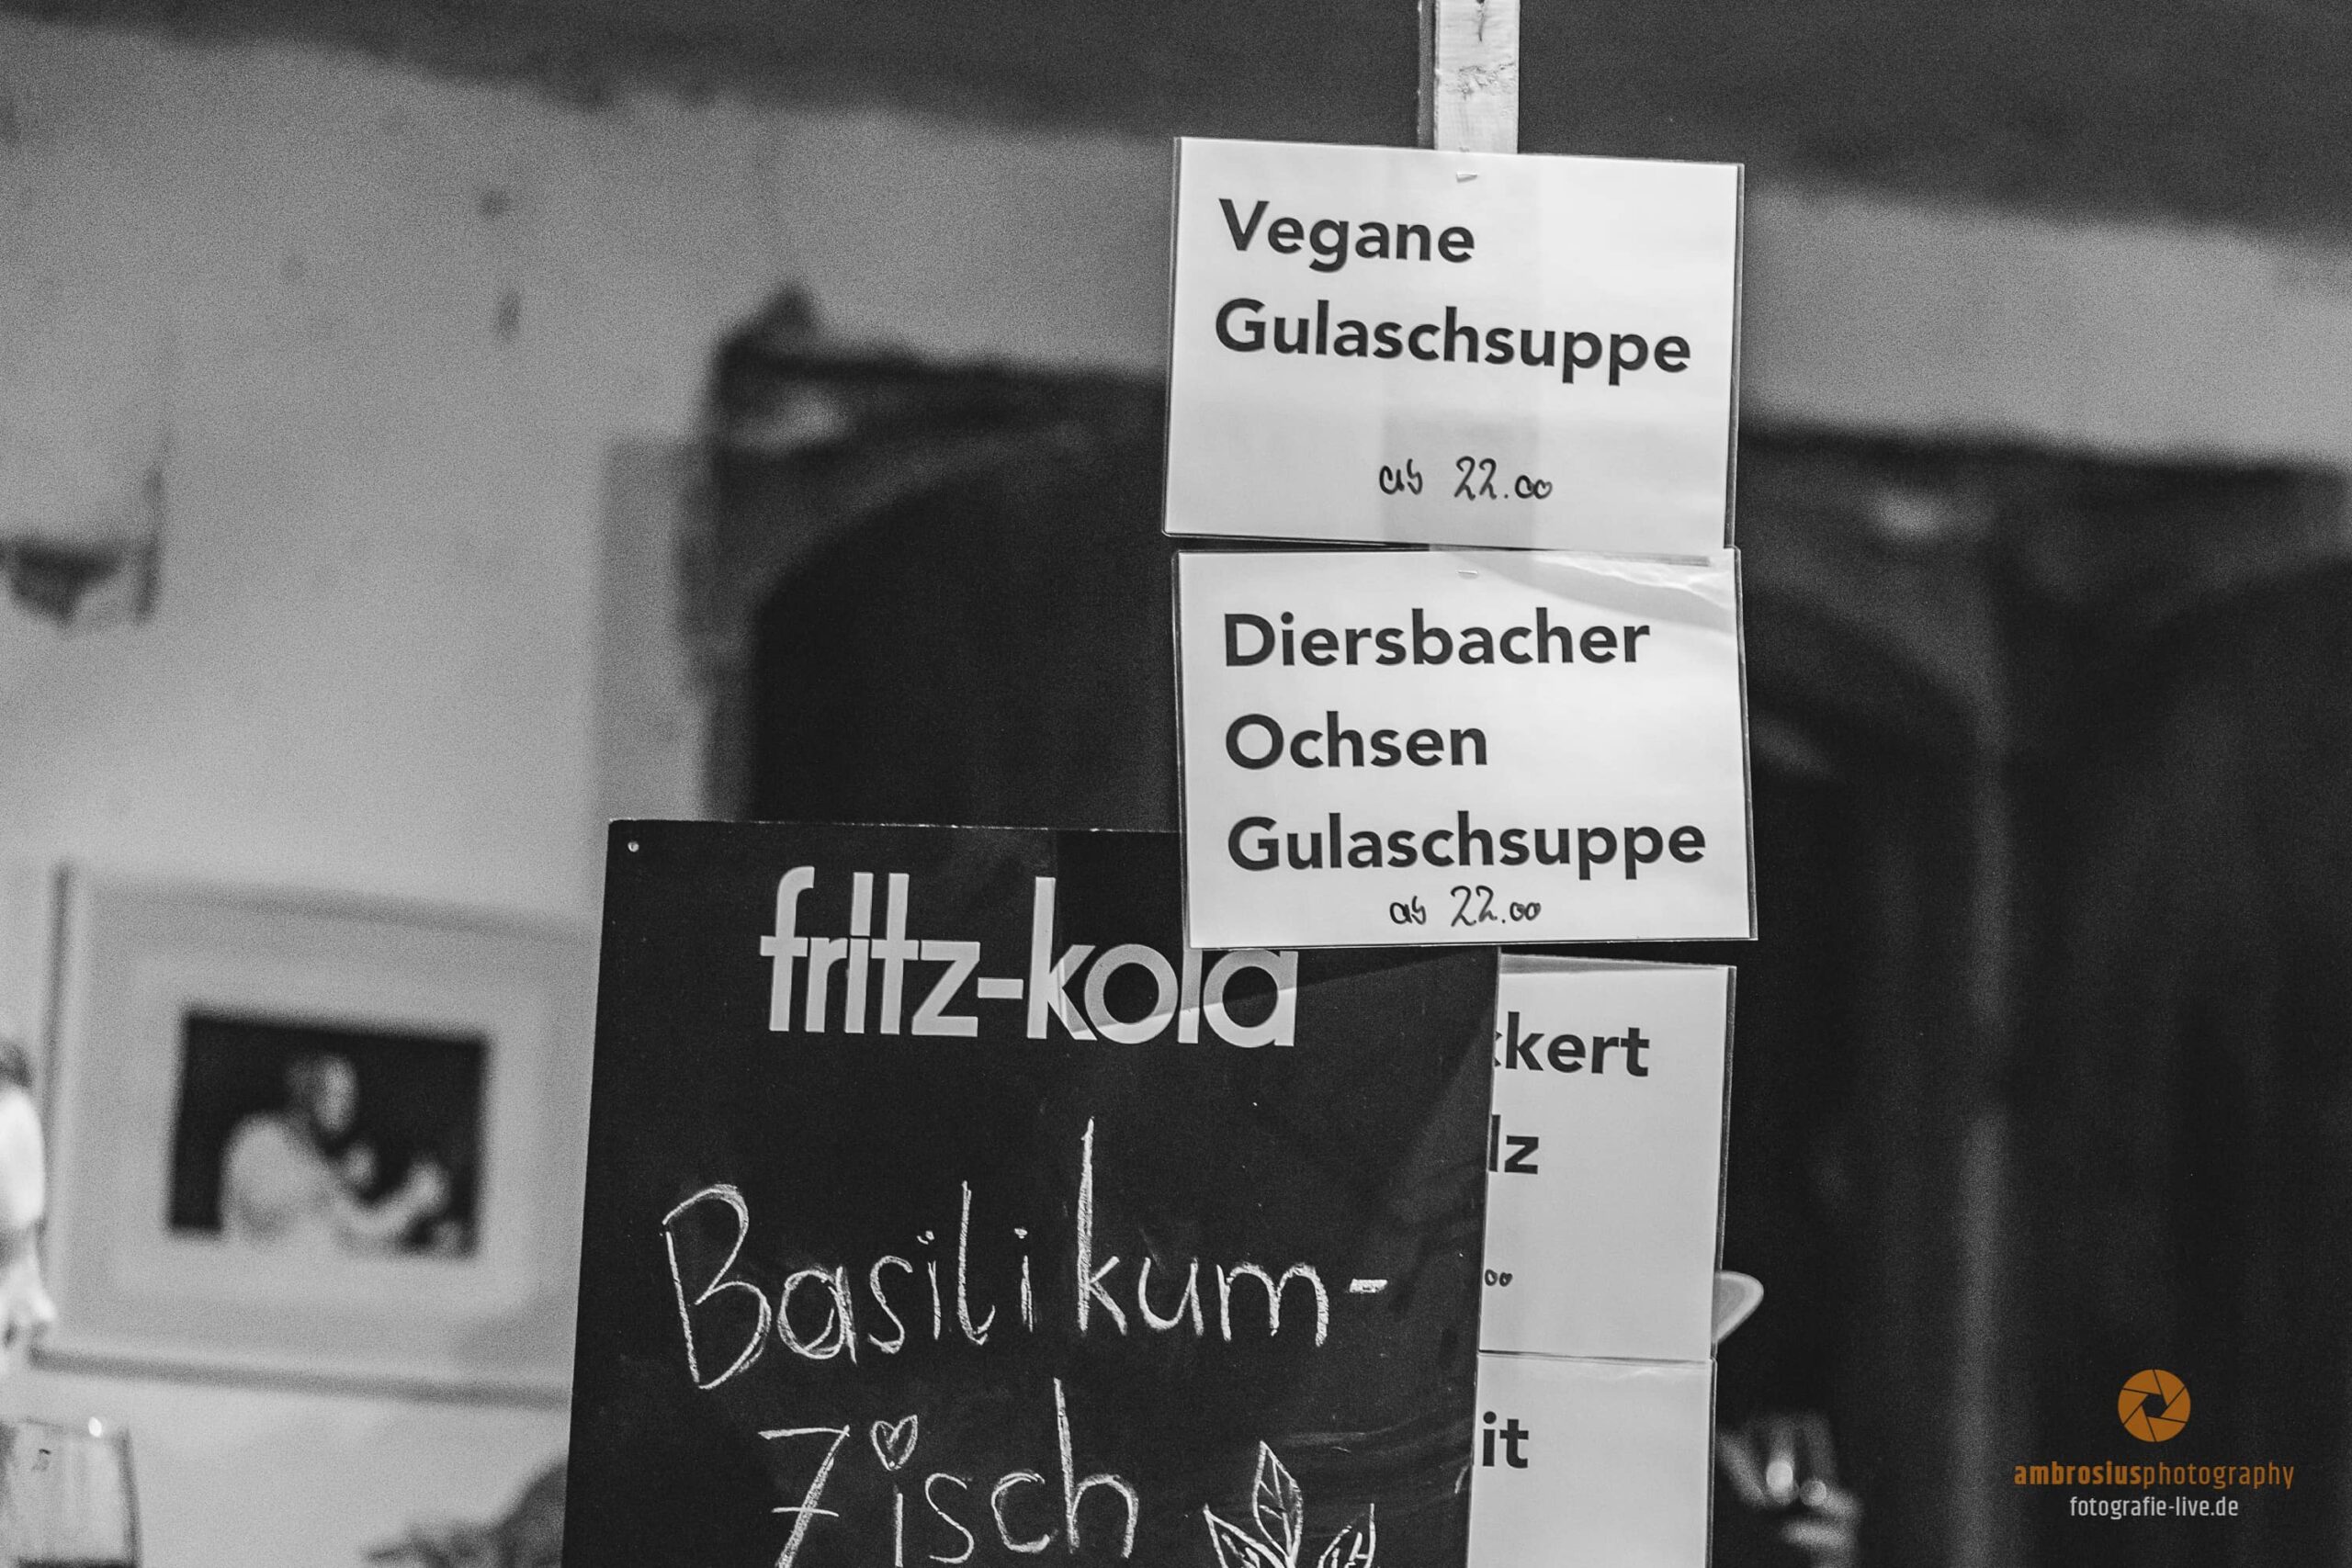 Vegane
Gulaschsuppe
ab 22.00
Diersbacher
Ochsen
Gulaschsuppe
ab 22.00
fritz-kola
Basilikum-
Zisch
ambrosiusphotography
fotografie-live.de